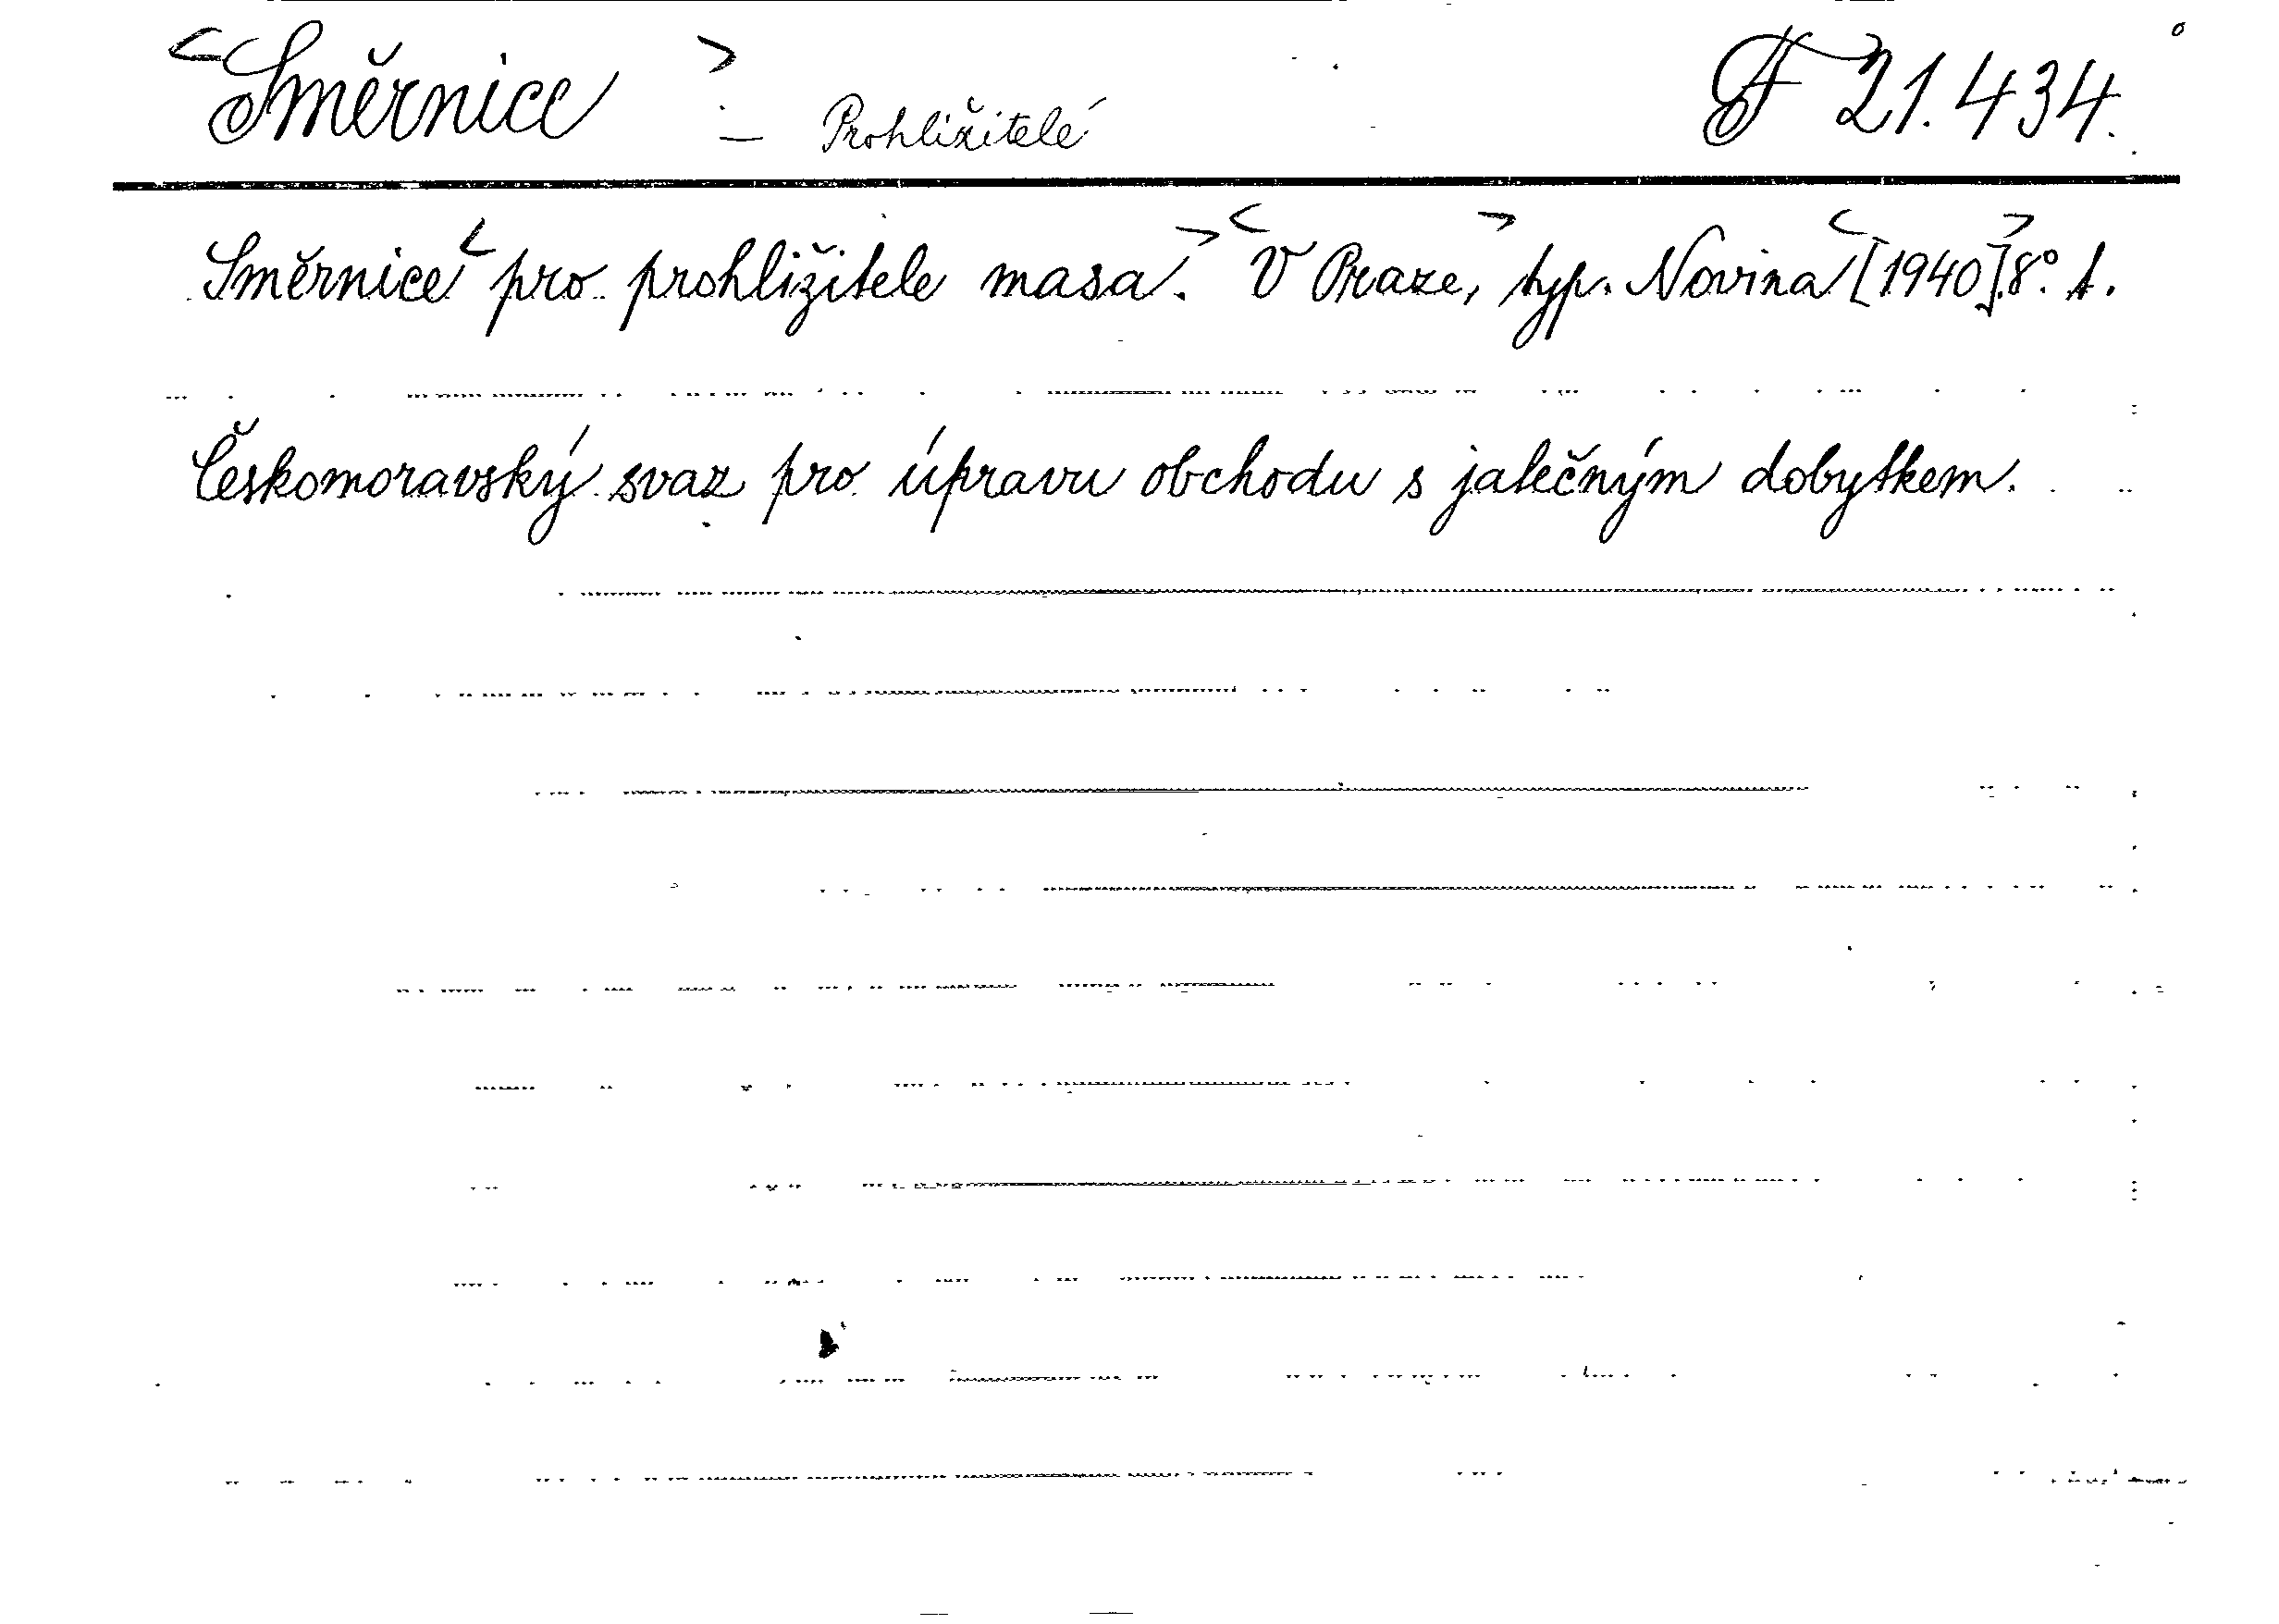 <Směrnice> – Prohližitelé F 21.434.
Směrnice< pro prohližitele masa.> <V Praze,> typ. Novina <[1940].> 8°. A.
Českomoravský svaz pro úpravu obchodu s jatečným dobytkem.